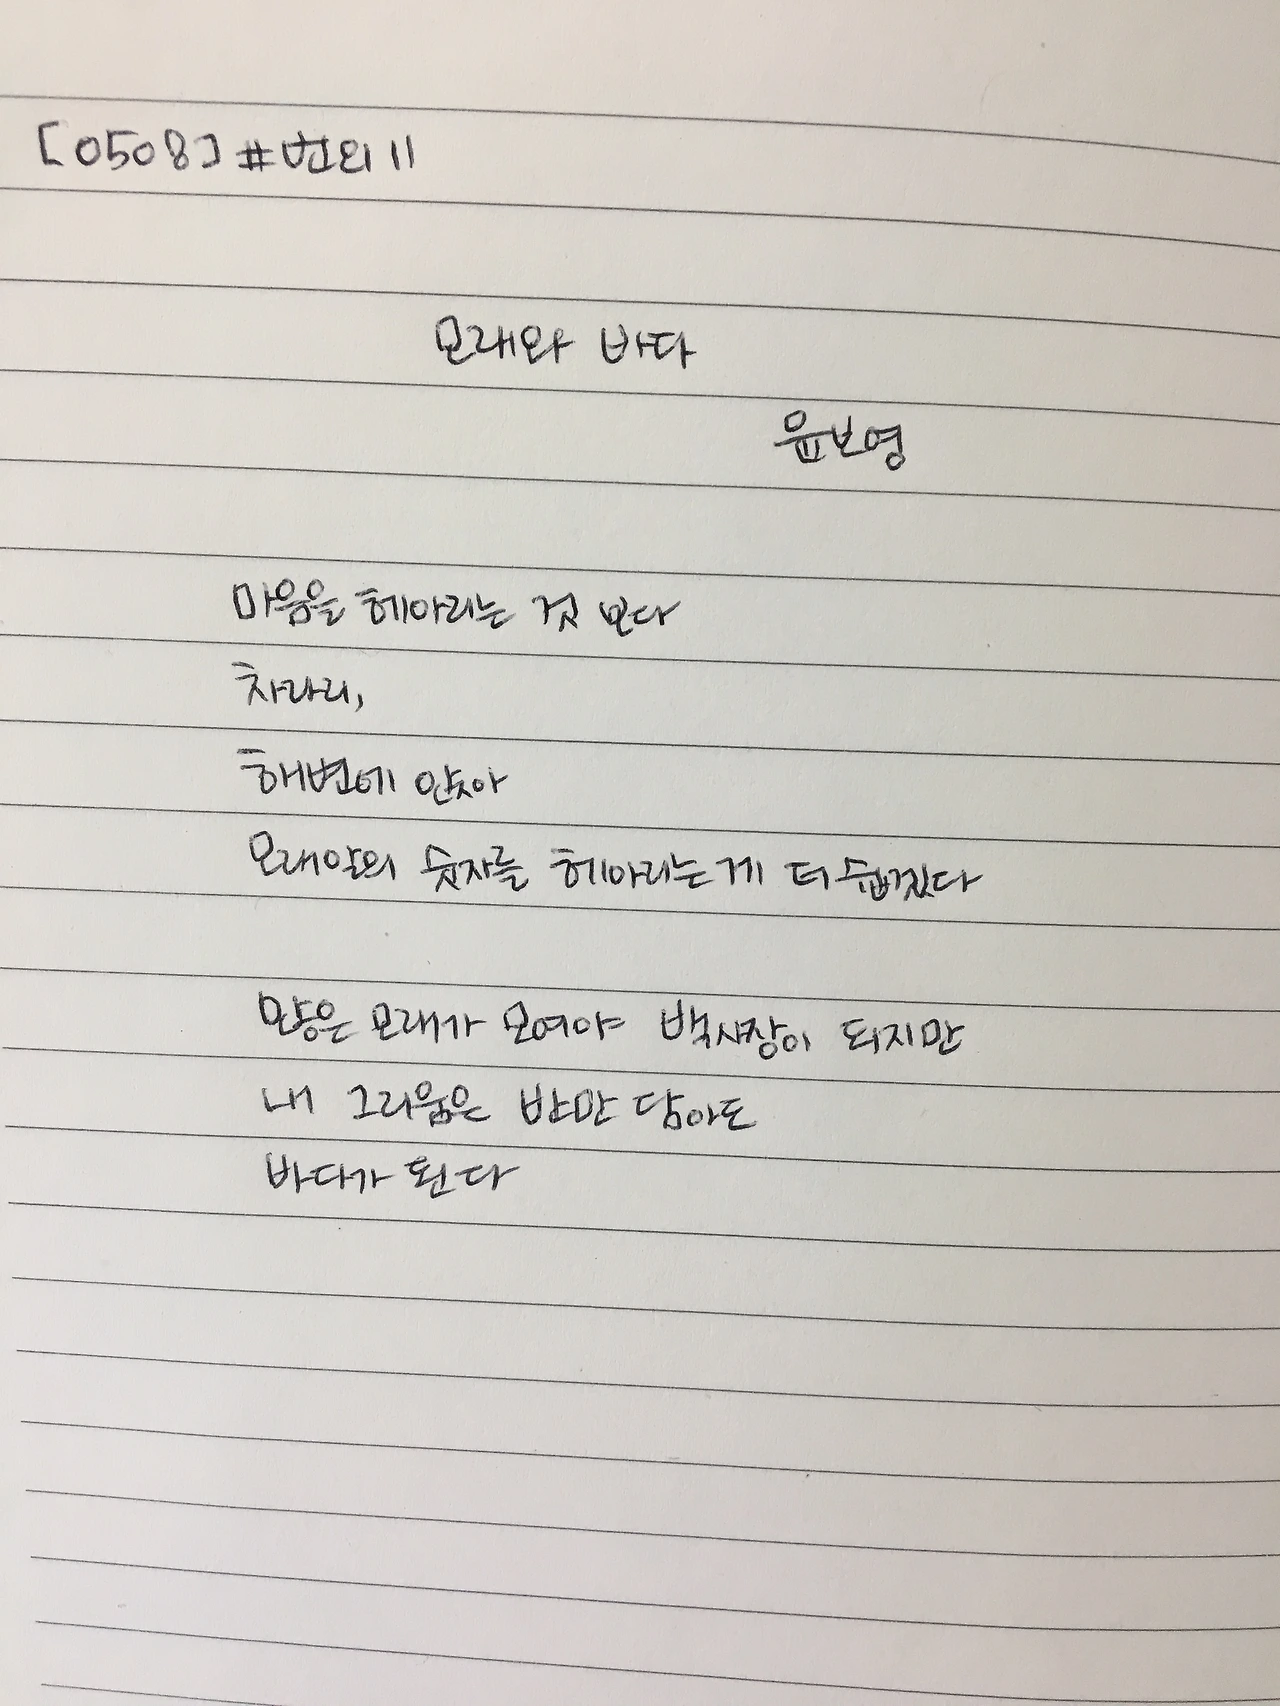 [0508] #번외 11
모래와 바다
윤보영
마음을 헤아리는 것 보다
차라리,
해변에 앉아
모래알의 숫자를 헤아리는게 더 쉽겠다
많은 모래가 모여야 백사장이 되지만
내 그리움은 반만 담아도
바다가 된다